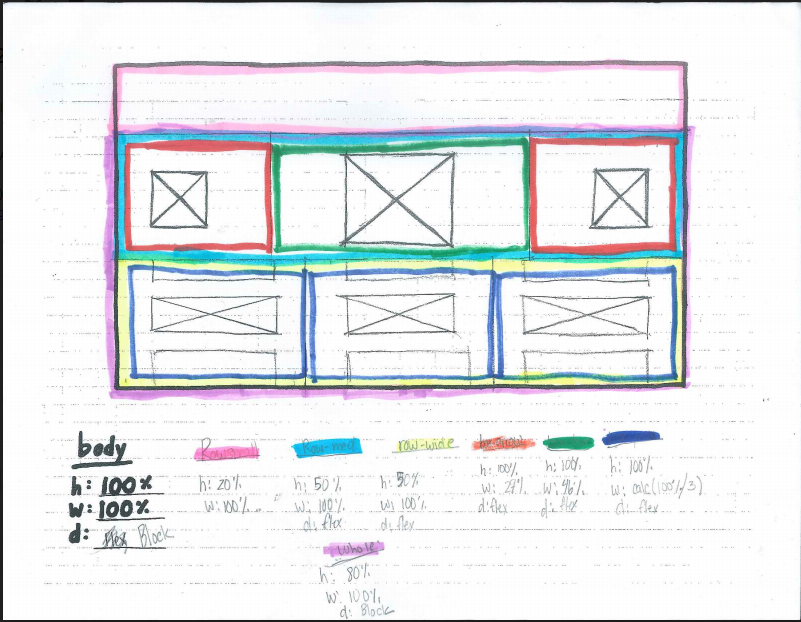 body
h: 100%
w: 100%
d: Block
Row-small
h: 20%
w: 100%
Row-med
h: 50%
w: 100%
d: flex
row-wide
h: 50%
w: 100%
d: flex
h: 100%
w: 27%
d: flex
h: 100%
w: 46%
d: flex
h: 100%
w: calc(100%/3)
d: flex
Whole
h: 80%
w: 100%
d: Block